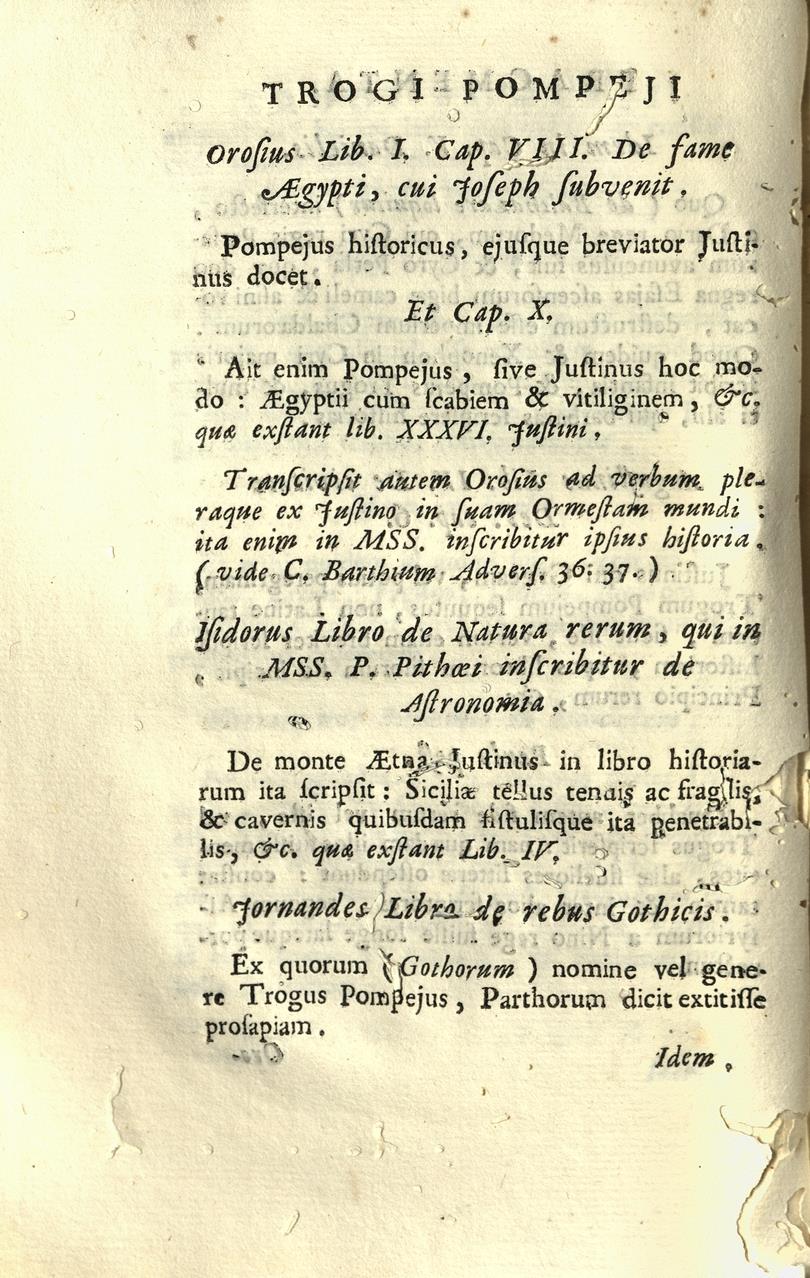 TROGI POMPEJI
Oroſius Lib. I. Cap. VIII. De fame
Ægypti, cui Joſeph ſubvenit.
Pompejus hiſtoricus, ejuſque breviator Juſti-
nus docet.
Et Cap. X.
Ait enim Pompejus, ſive Juſtinus hoc mo-
do: Ægyptii cum ſcabiem & vitiliginem, &c.
quæ exſtant lib. XXXVI. Juſtini.
Tranſcripſit autem Oroſius ad verbum ple-
raque ex Juſtino in ſuam Ormeſtam mundi:
ita enim in MSS. inſcribitur ipſius hiſtoria.
(vide C. Barthium Adverſ. 36. 37.)
Iſidorus Libro de Natura rerum, qui in
MSS. P. Pithœi inſcribitur de
Aſtronomia.
De monte Ætna Juſtinus in libro hiſtoria-
rum ita ſcripſit: Siciliæ tellus tenuis ac fragilis,
& cavernis quibuſdam fiſtuliſque ita penetrabi-
lis, &c. quæ exſtant Lib. IV.
Jornandes Libro de rebus Gothicis.
Ex quorum (Gothorum) nomine vel gene-
re Trogus Pompejus, Parthorum dicit extitiſſe
proſapiam.
Idem,